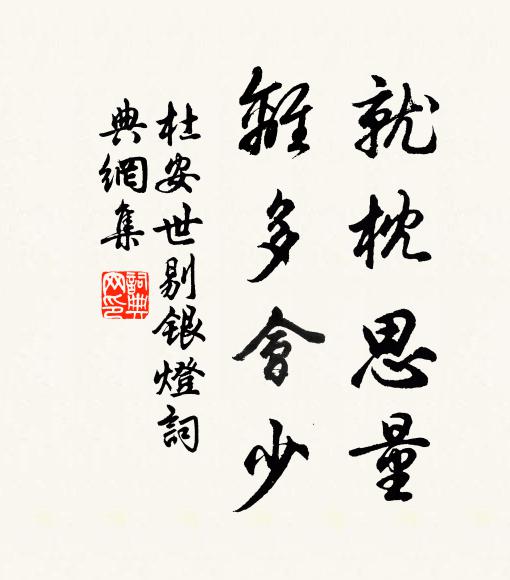 就枕思量
離多會少
杜安世剔銀燈詞
典網集
詞典网印